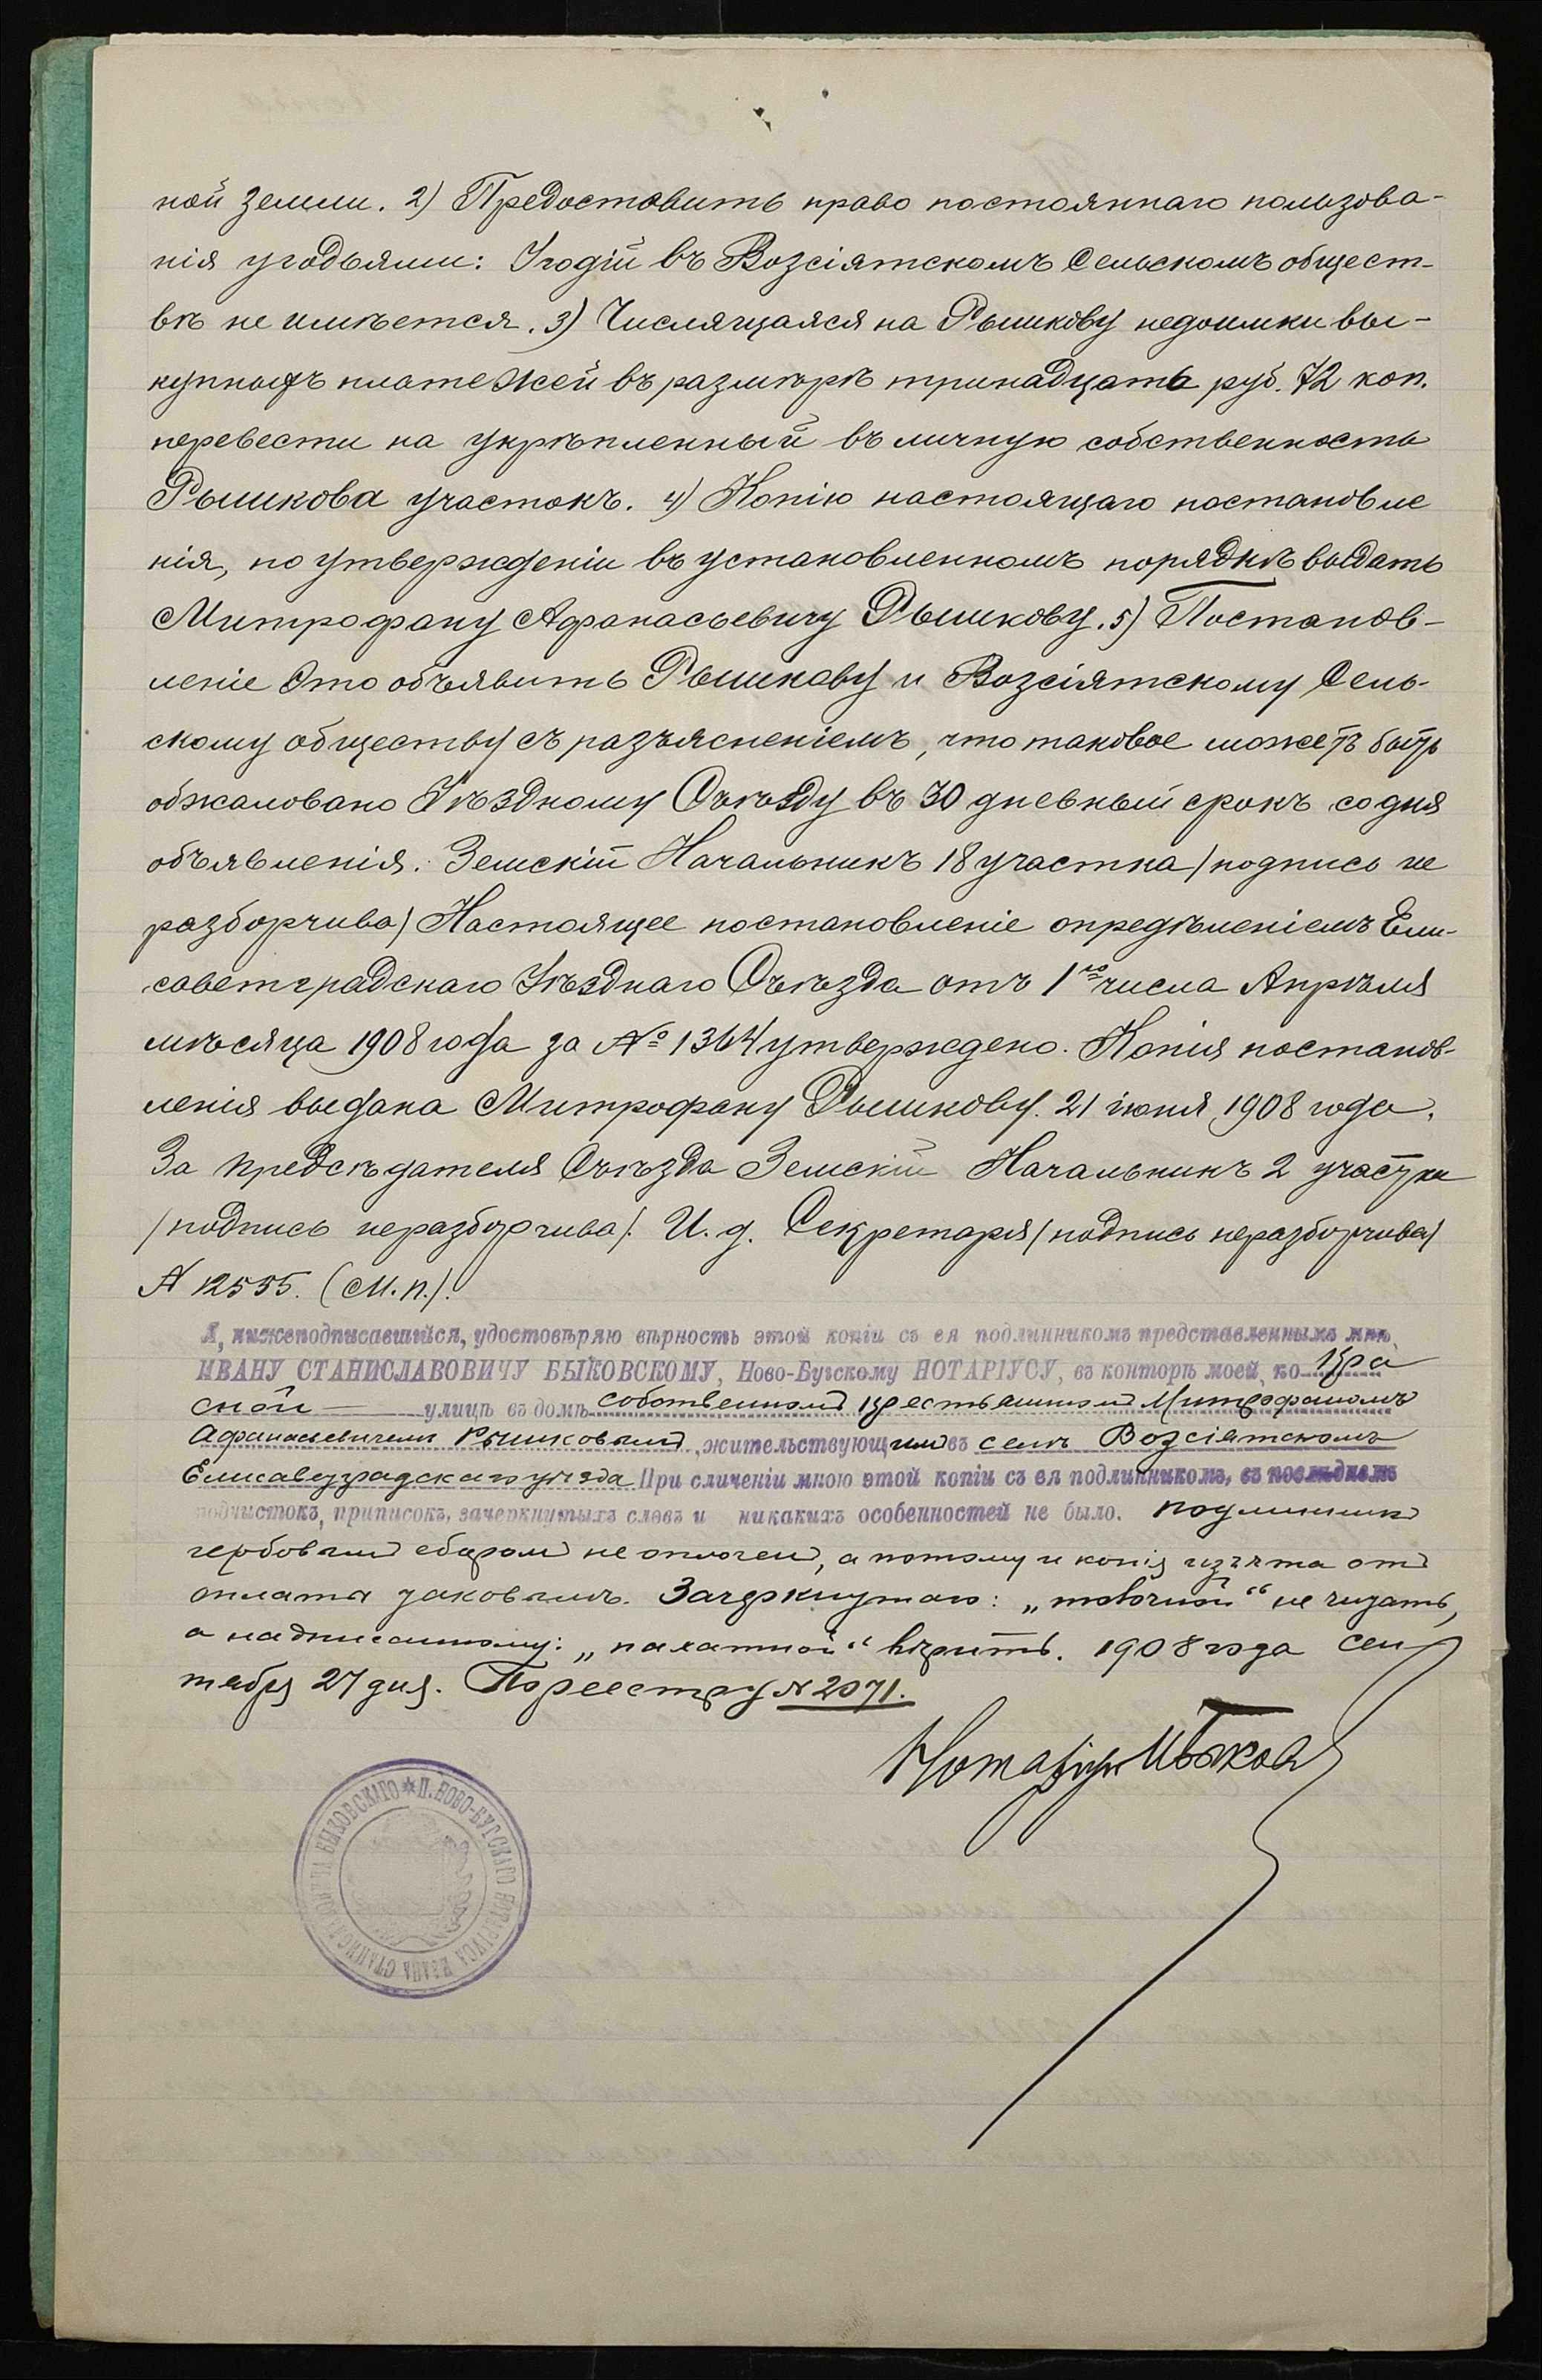 ной земли. 2) Предоставить право постояннаго пользова-
нія угодьями: Угодій въ Возсіятскомъ Сельскомъ общест-
вѣ не имѣется. 3) Числящаяся на Рышкову недоимки вы-
купныхъ платежей въ размѣрѣ тринадцать руб. 72 коп.
перевести на укрѣпленный въ личную собственность
Рышкова участокъ. 4) Копію настоящаго постановле
нія, по утвержденіи въ установленномъ порядкѣ выдать
Митрофану Афанасьевичу Рышкову. 5) Постанов-
леніе это объявить Рышкову и Возсіятскому Сель-
скому обществу съ разъясненіемъ, что таковое можетъ быть
обжаловано Уѣздному Съѣзду въ 30 дневный срокъ со дня
объявленія. Земскій Начальникъ 18 участка /подпись не
разборчива/ Настоящее постановленіе опредѣленіемъ Ели-
саветградскаго Уѣзднаго Съѣзда отъ 1го числа Апрѣля
мѣсяца 1908 года за № 1364 утверждено. Копія постанов-
ленія выдана Митрофану Рышкову. 21 іюня 1908 года.
За предсѣдателя Съѣзда Земскій Начальникъ 2 участка
/подпись неразборчива/. И. д. Секретаря /подпись неразборчива/
N 12555. (М. п.).
Я, нижеподписавшійся, удостовѣряю вѣрность этой копіи съ ея подлинникомъ представленнымъ мнѣ,
ИВАНУ СТАНИСЛАВОВИЧУ БЫКОВСКОМУ, Ново-Бугскому НОТАРІУСУ, въ конторѣ моей, по Кра
сной — улицѣ въ домѣ собственномъ крестьяниномъ Митрофаномъ
Афанасьевичемъ Рышковымъ, жительствующимъ въ селѣ Возсіятскомъ
Елисаветградскаго уѣзда При сличеніи мною этой копіи съ ея подлинникомъ, въ послѣднемъ
подчистокъ, приписокъ, зачеркнутыхъ словъ и никакихъ особенностей не было. Подлинникъ
гербовымъ сборомъ не оплоченъ, а потому и копія изъята отъ
оплаты таковымъ. Зачеркнутаго: „ не читать,
а надписанному: „ вѣрить. 1908 года Сен
тября 27 дня. По реестру N 2071.
Нотаріусъ ИБыков
П. НОВО-БУГСКАГО НОТАРІУСА ИВАНА СТАНИСЛАВОВИЧА БЫКОВСКАГО